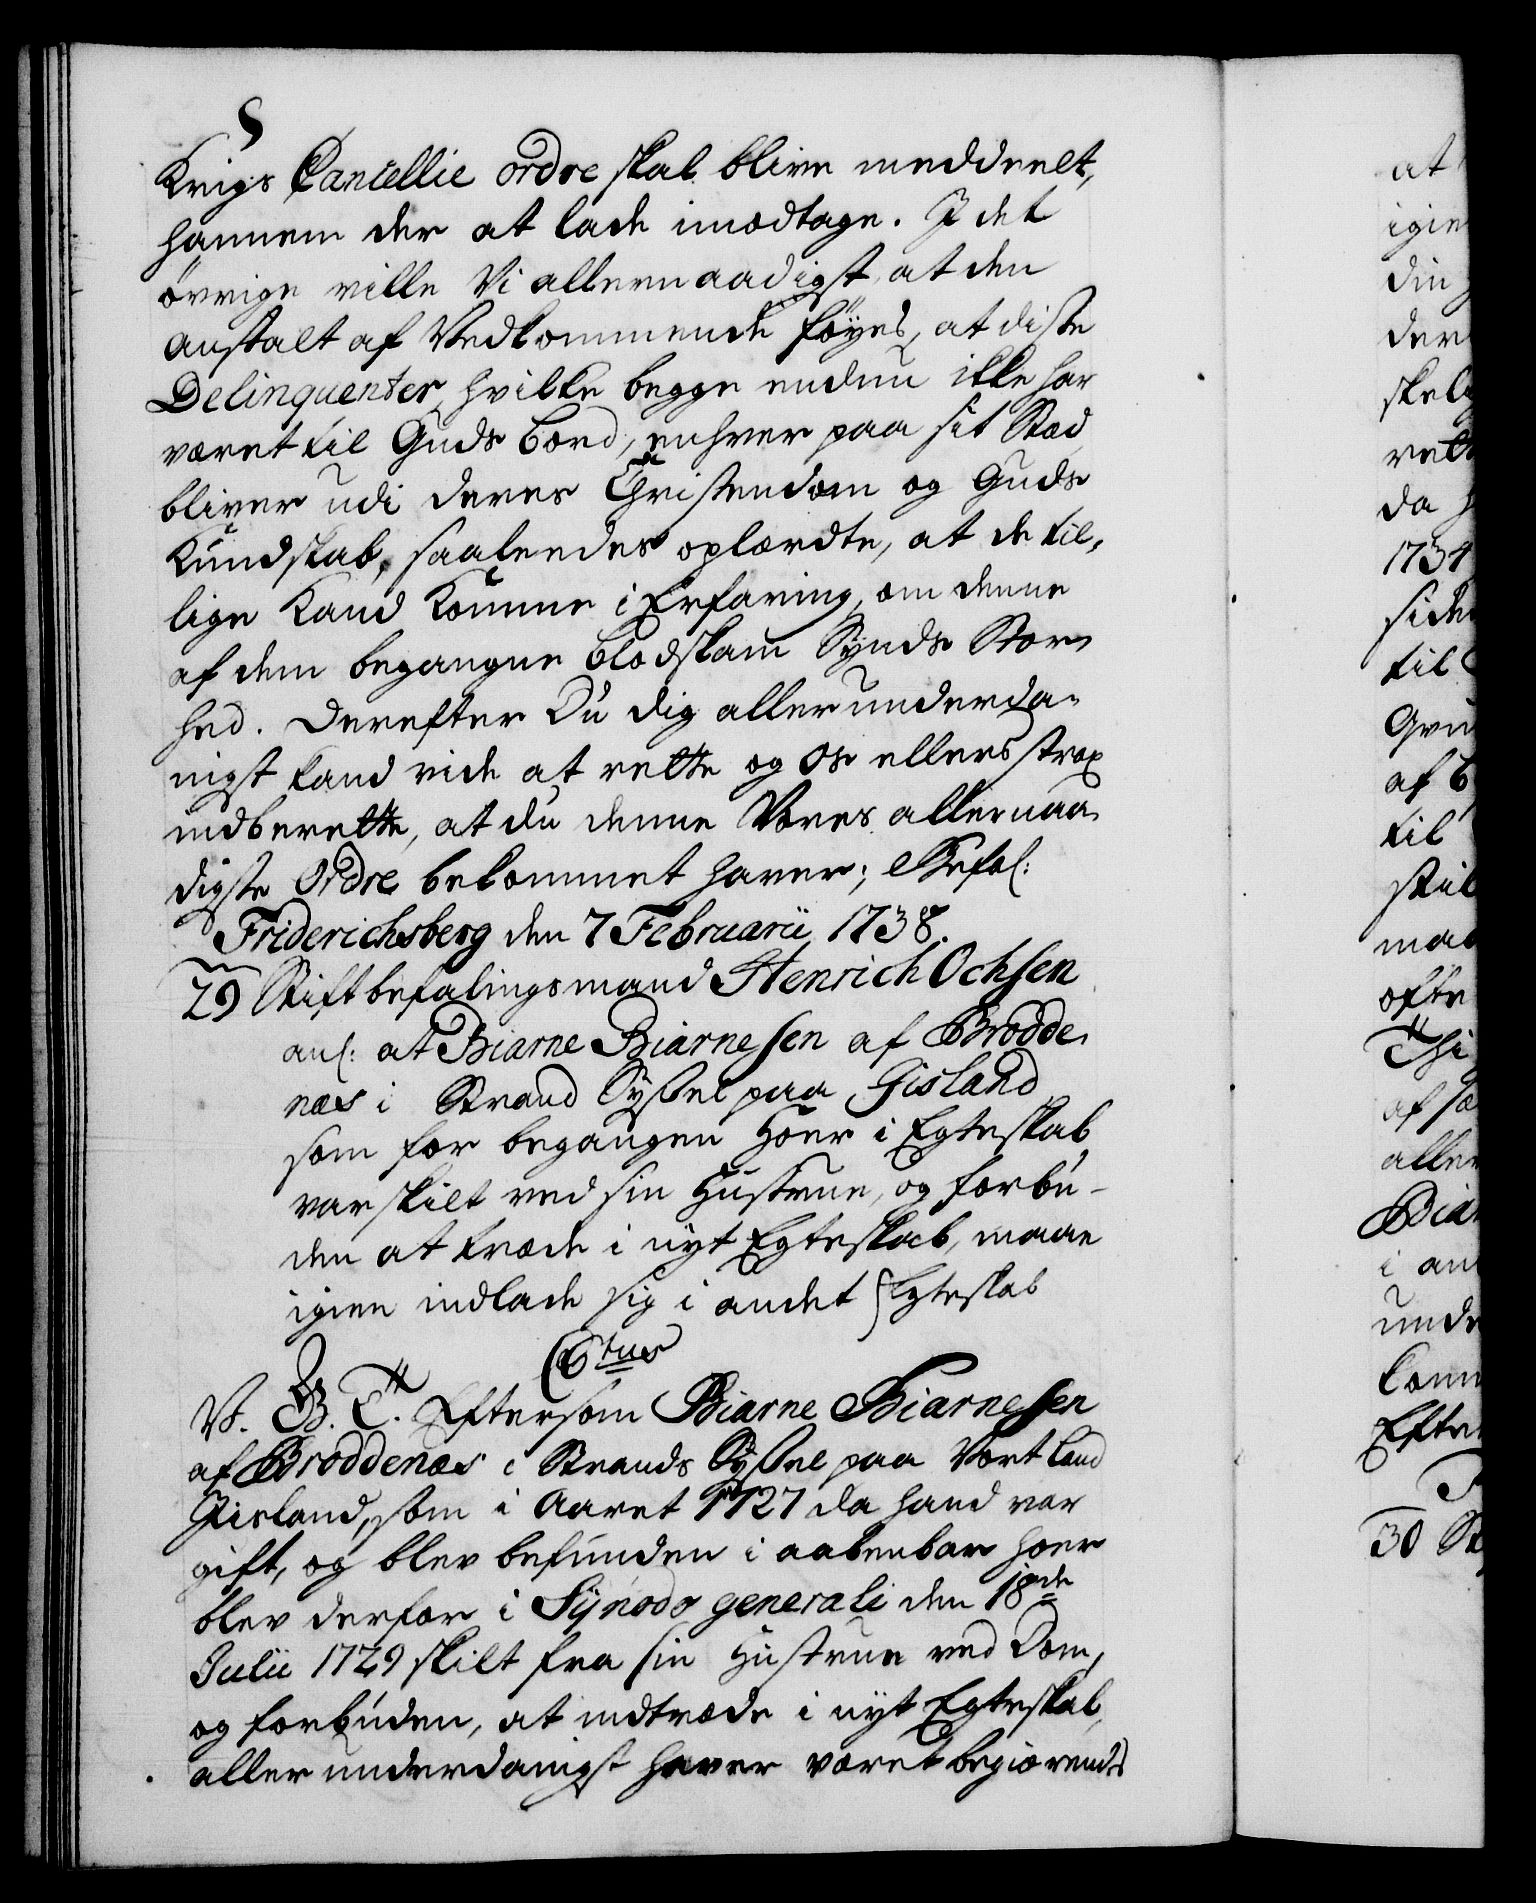 Krigs Cancellie ordre skal blive meddeelt,
hannem der at lade imodtage. I det
övrige ville Vi allernaadigst, at den
Anstalt af Vedkommende föyes, at diste
Delinquenter, hvilke begge endnu ikke har
været til Guds bord, enhver paa sit Stæd
bliver udi deres Christendom og Guds
Kundskab, saaleedes oplærdte, at de til-
lige Kand Komme i Erfaring, om denne
af dem begangne blodskams Synds Stor-
hed. Derefter Du dig allerunderda-
nigst kand vide at rette og Os ellers strax
indberette, at du denne Vores allernaa-
digste Ordre bekommet haver; Befal:
Friderichsberg den 7 Februarii 1738.
29 Stiftbefalingsmand Henrich Ochsen
anl: at Biarne Biarnesen af Brodde-
næs i Strand Syssel paa Jisland
som for begangen Hoer i Egteskab
var skilt ved sin Hustrue, og forbu-
den at træde i nyt Egteskab, maae
igien indlade sig i andet Egteskab
C 6tus
V. G. T. Eftersom Biarne Biarnesen
af Broddenæs i Strands Syssel paa Vort land
Jisland, som i Aaret 1727 da hand var
gift, og blev befunden i aabenbar hoer
blev derfor i Synodo generali den 18de
Julii 1729 skilt fra sin Hustrue ved Dom,
og forbuden, at indtræde i nyt Egteskab,
allerunderdanigst haver været begiærende
at
igie
din
der
skel
rett
da
1734
side
til
Gru
af
til
skil
mae
ofte
Thi
af
aller
Biar
i an
unde
Com
Efter
30 St